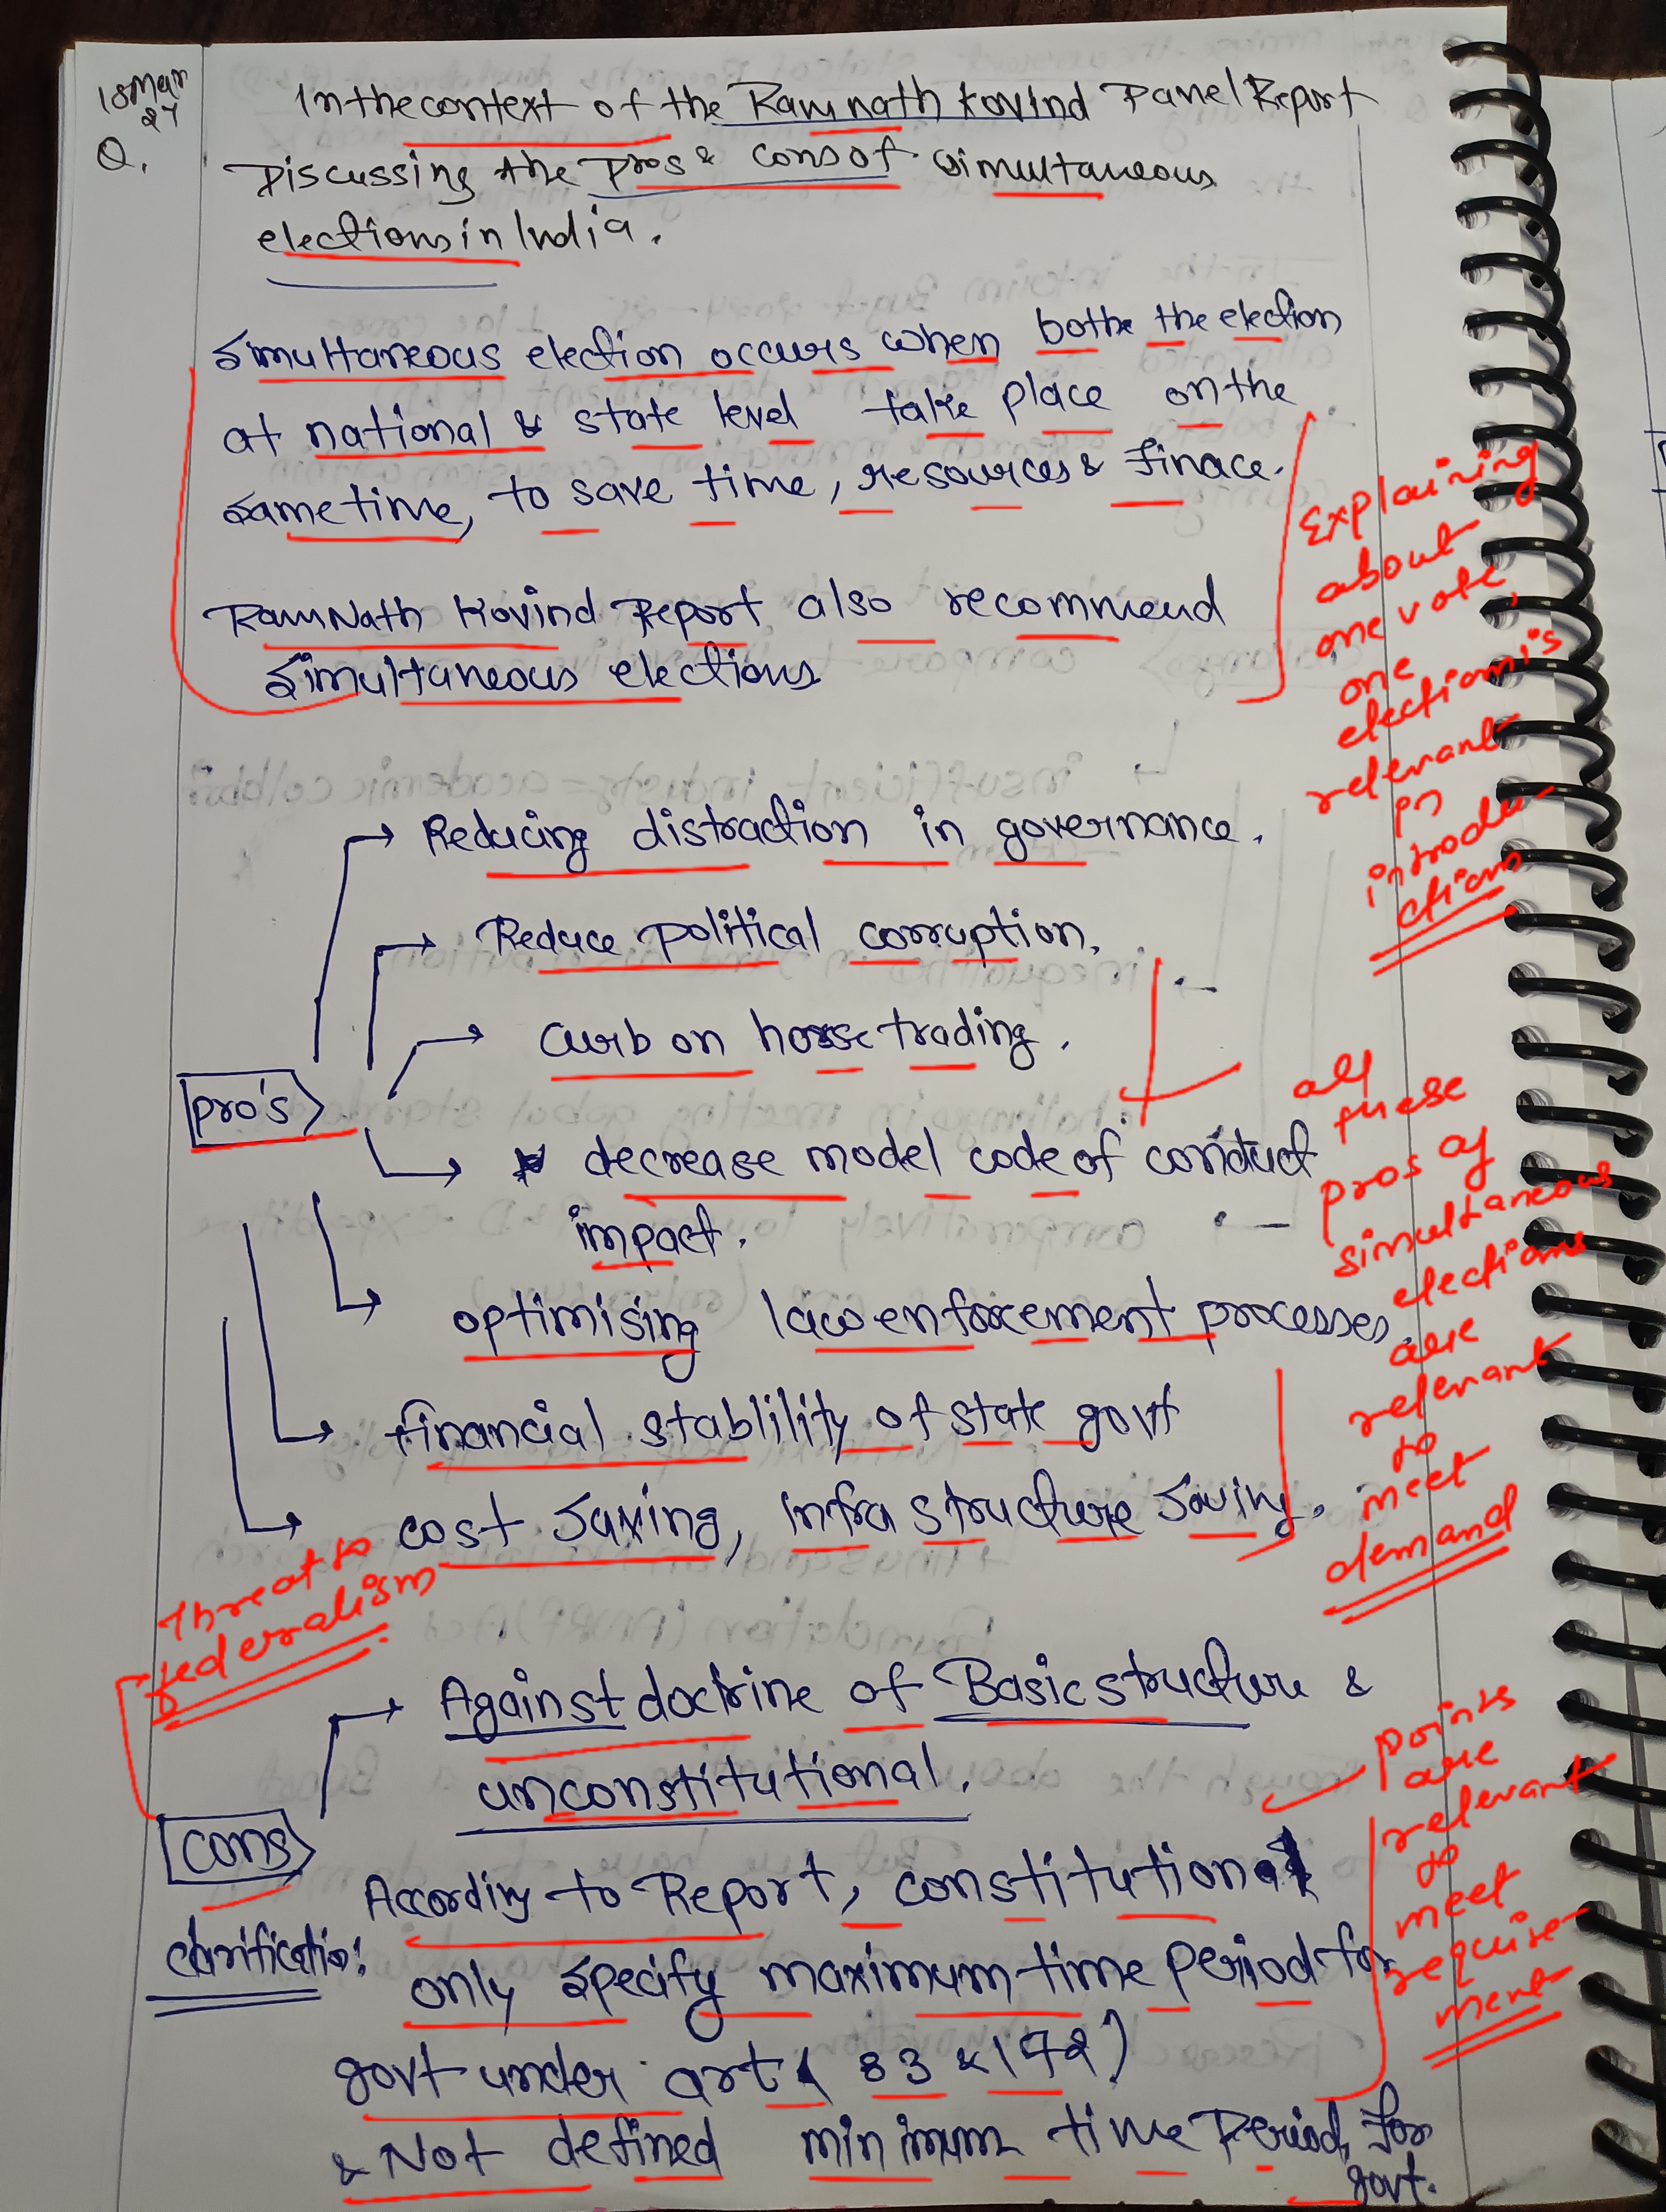 18 Mar
27
Q. In the context of the Ramnath Kovind Panel Report
Discussing the pros & cons of simultaneous
elections in India.
Simultaneous election occurs when bothe the election
at national & state level take place on the
same time, to save time, resources & finace.
RamNath Kovind Report also recommend
simultaneous elections
Explaining
about
one vote,
one
election is
relevant
in
introdu-
ction
→ Reducing distraction in governance.
→ Reduce political corruption.
→ curb on horse trading.
pro's
→ decrease model code of conduct
impact.
→ optimising law enforcement processes.
→ financial stablility of state govt
→ cost saving, infrastructure saving.
all
these
pros of
simultaneous
elections
are
relevant
to
meet
demand
Threat to
federalism
→ Against doctrine of Basic structure &
unconstitutional.
cons
points
are
relevant
to
meet
require-
ment
clarificatio:
According to Report, constitutional
only specify maximum time period for
govt under art ( 83 & 172)
& Not defined minimum time Period for
govt.